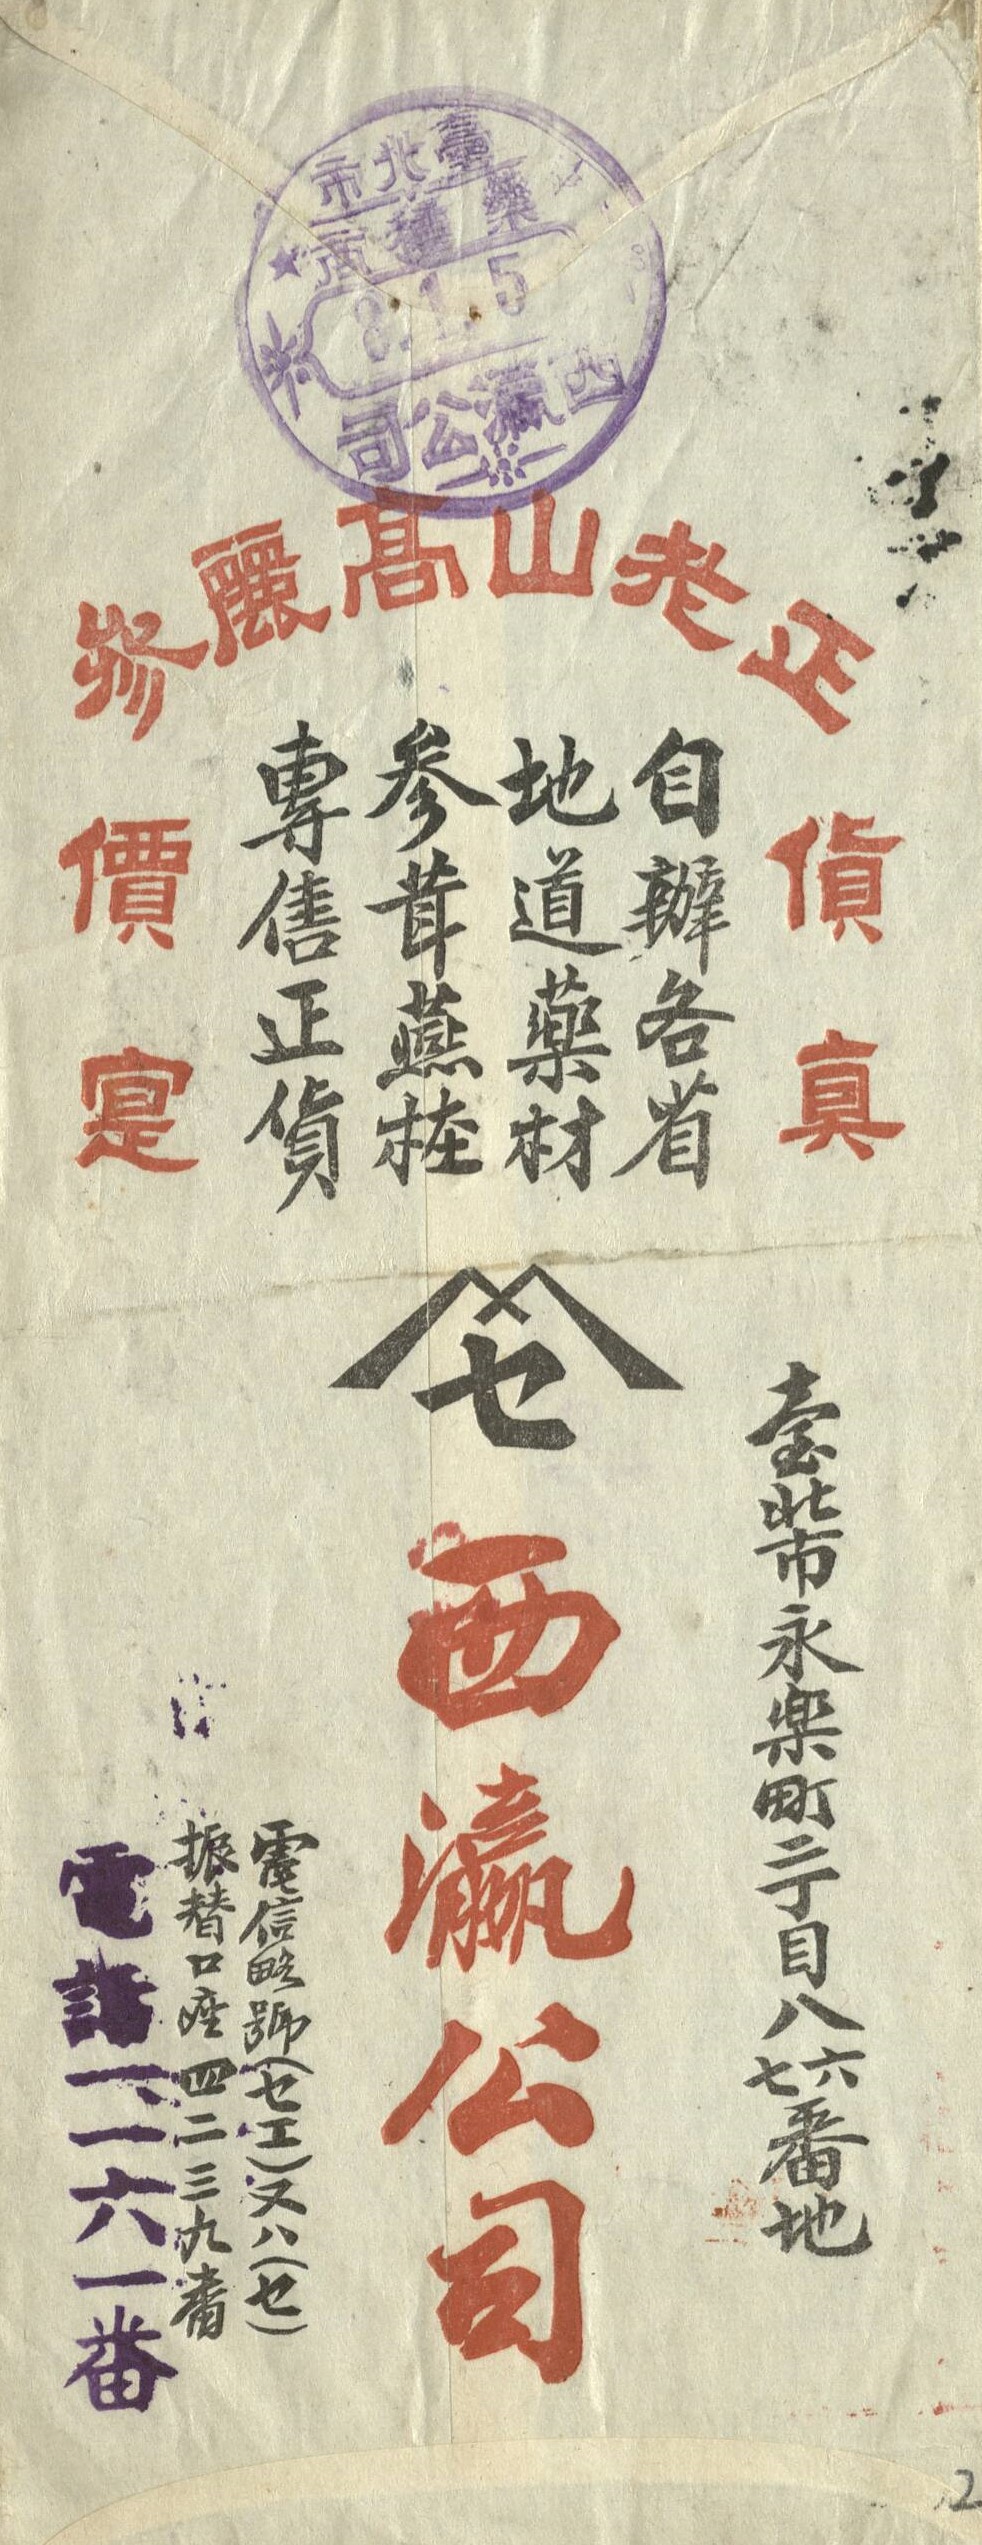 臺北市
藥種商
8.1.5
西瀛公司
正老山高麗參
貨真
自辦各省
地道藥材
參茸燕桂
專售正貨
價寔
セ
臺北市永楽町二丁目八六七番地
西瀛公司
電信略號(セエ)又ハ(セ)
振替口座四二三九番
電話一二六一番
2